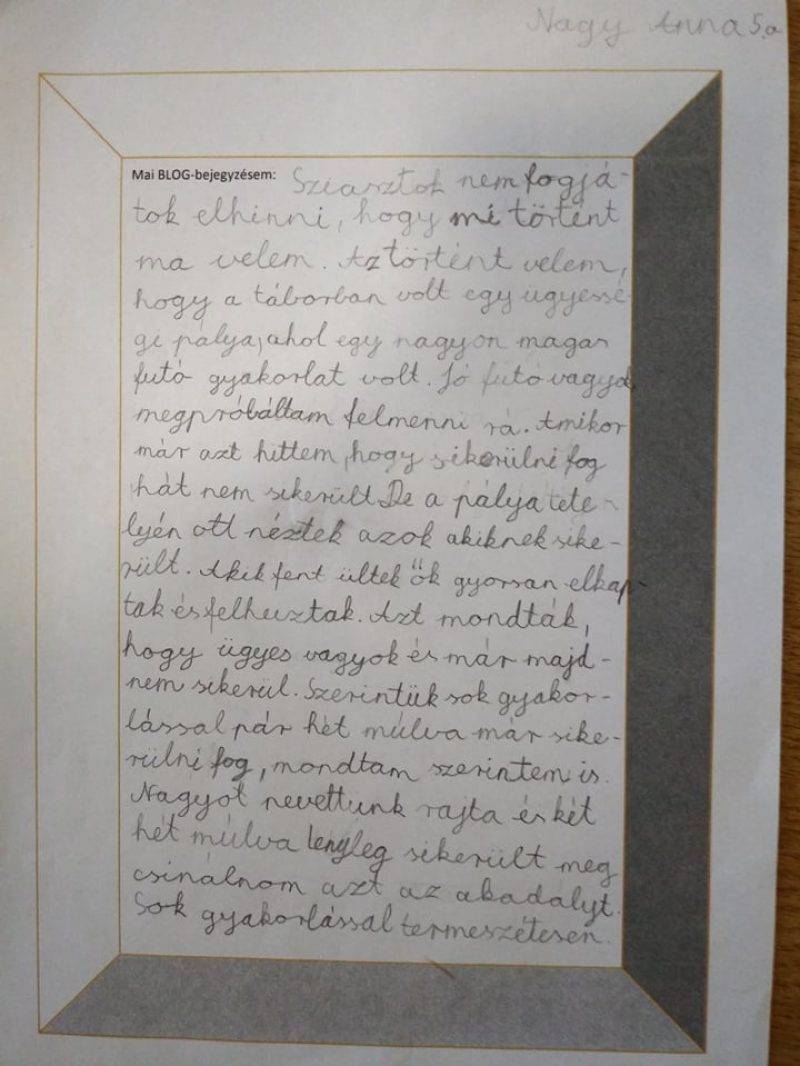 Nagy Anna 5.a
Mai BLOG-bejegyzésem: Sziasztok nem fogjá-
tok elhinni, hogy mi történt
ma velem. Az történt velem,
hogy a táborban volt egy ügyessé-
gi pálya, ahol egy nagyon magas
futó gyakorlat volt. Jó futó vagyok
megpróbáltam felmenni rá. Amikor
már azt hittem, hogy sikerülni fog
hát nem sikerült. De a pálya tete-
lyén ott néztek azok akiknek sike-
rült. Akik fent ültek ők gyorsan elkap-
tak és felhuztak. Azt mondták,
hogy ügyes vagyok és már majd-
nem sikerül. Szerintük sok gyakor-
lással pár hét múlva már sike-
rülni fog, mondtam szerintem is.
Nagyot nevettünk rajta és két
hét múlva sikerült meg
csinálnom azt az akadalyt.
Sok gyakorlással termeszétesen.